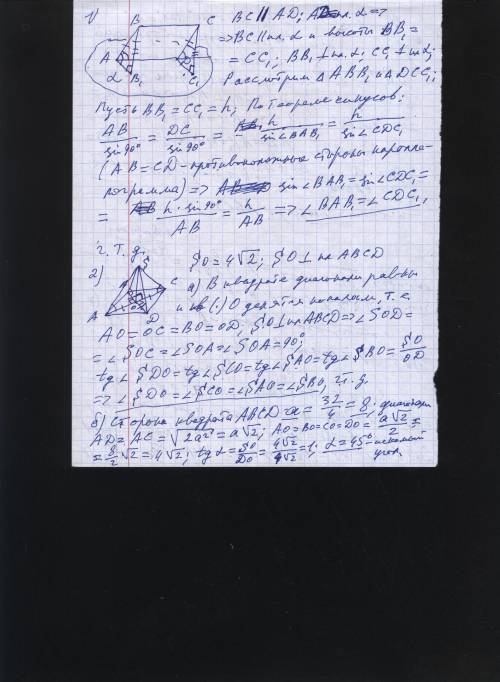 1) B C BC || AD; AD ∈ пл. α =>
=> BC || пл. α и высоты BB₁ =
= CC₁; BB₁ ⊥ пл. α; CC₁ ⊥ пл. α;
A α B₁ C₁ Рассмотрим △ ABB₁ и △ DCC₁;
Пусть BB₁ = CC₁ = h; По теореме синусов:
AB/sin 90° = DC/sin 90° = h/sin∠BAB₁ = h/sin∠CDC₁
(AB = CD - противоположные стороны паралле-
лограмма) => sin∠BAB₁ = sin∠CDC₁ =
= h·sin 90°/AB = h/AB => ∠BAB₁ = ∠CDC₁,
ч. т. д.
2) S SO = 4√2; SO ⊥ пл. ABCD
A B C D а) В квадрате диагонали равны
и в (·) O делятся пополам, т. е.
AO = OC = BO = OD, SO ⊥ пл. ABCD => ∠SOD =
= ∠SOC = ∠SOA = ∠SOA = 90°;
tg∠SDO = tg∠SCO = tg∠SAO = tg∠SBO = SO/OD
=> ∠SDO = ∠SCO = ∠SAO = ∠SBO, ч. т. д.
б) Сторона квадрата ABCD = a = 32/4 = 8; диагонали
AD = AC = √2a² = a√2; AO = BO = CO = DO = a√2/2 =
= 8/2 √2 = 4√2; tg α = SO/DO = 4√2/4√2 = 1; α = 45° - искомый
угол.